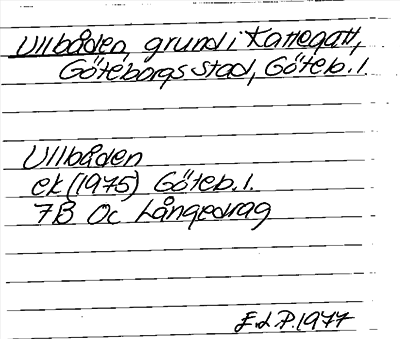 Ullbåden, grund i Kattegatt,
Göteborgs stad, Göteb. l.
Ullbåden
ek (1975) Göteb. l.
7B 0c Långedrag
E.d.P. 1977